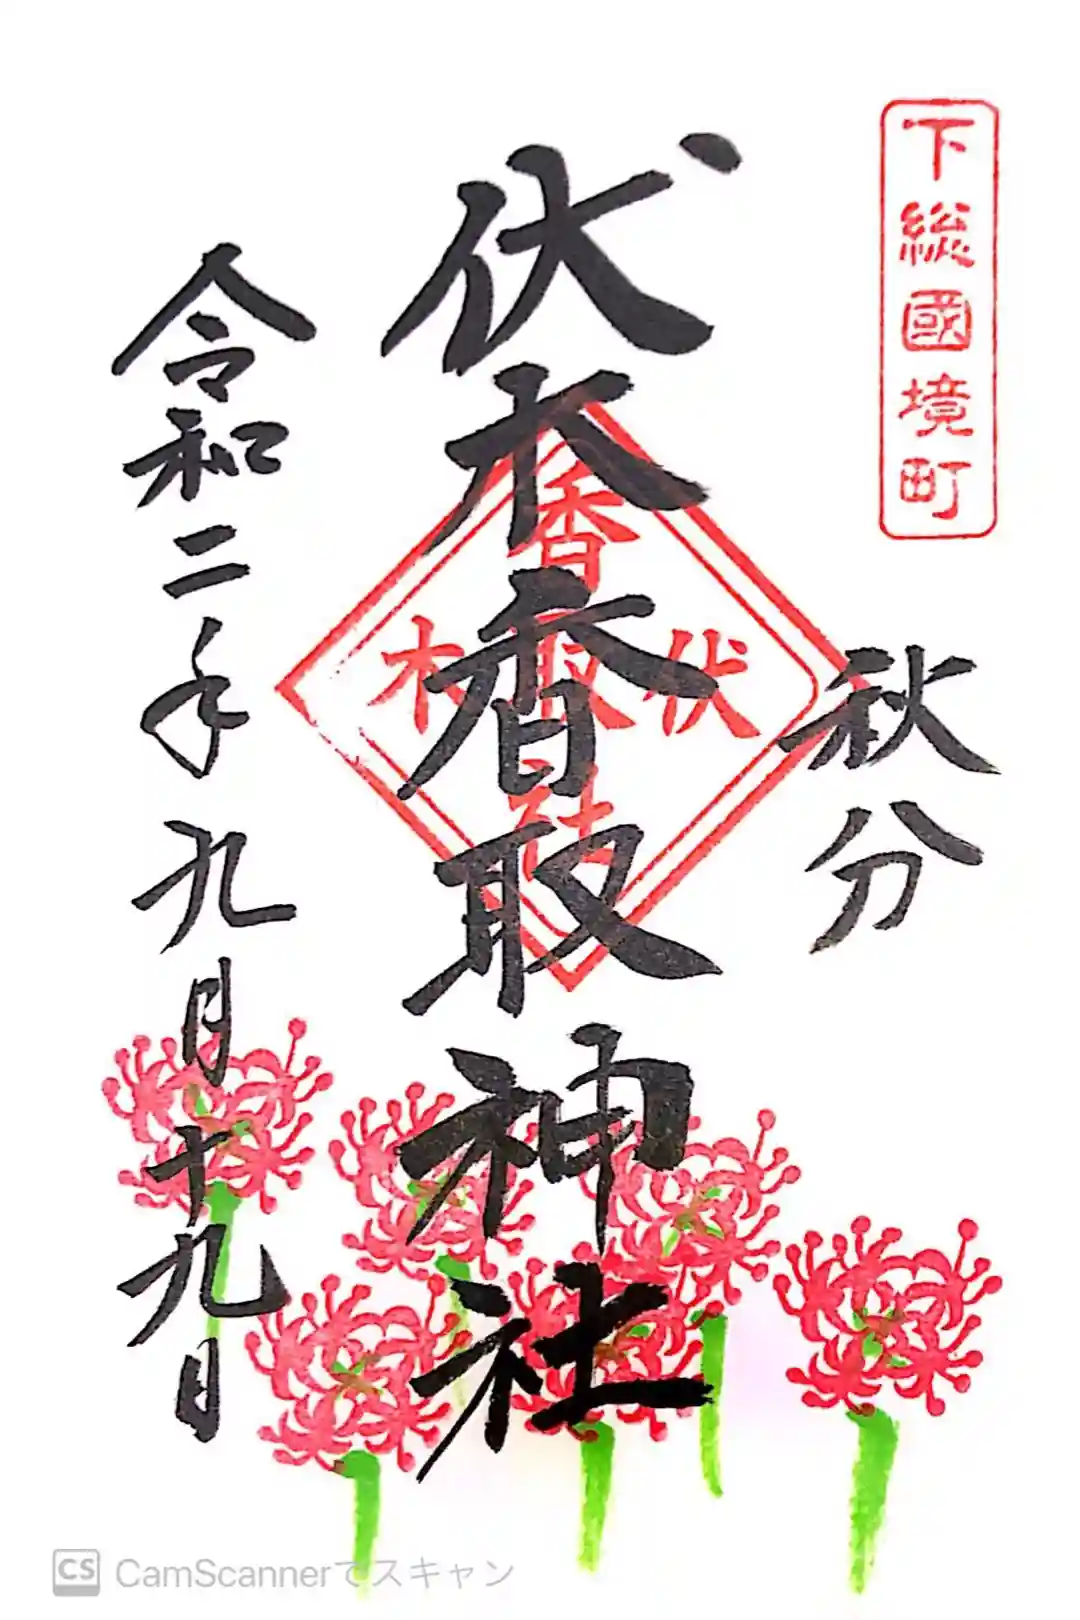 下総國境町
秋分
伏木香取神社
香取社
伏木
令和二年九月十九日
CS CamScannerでスキャン